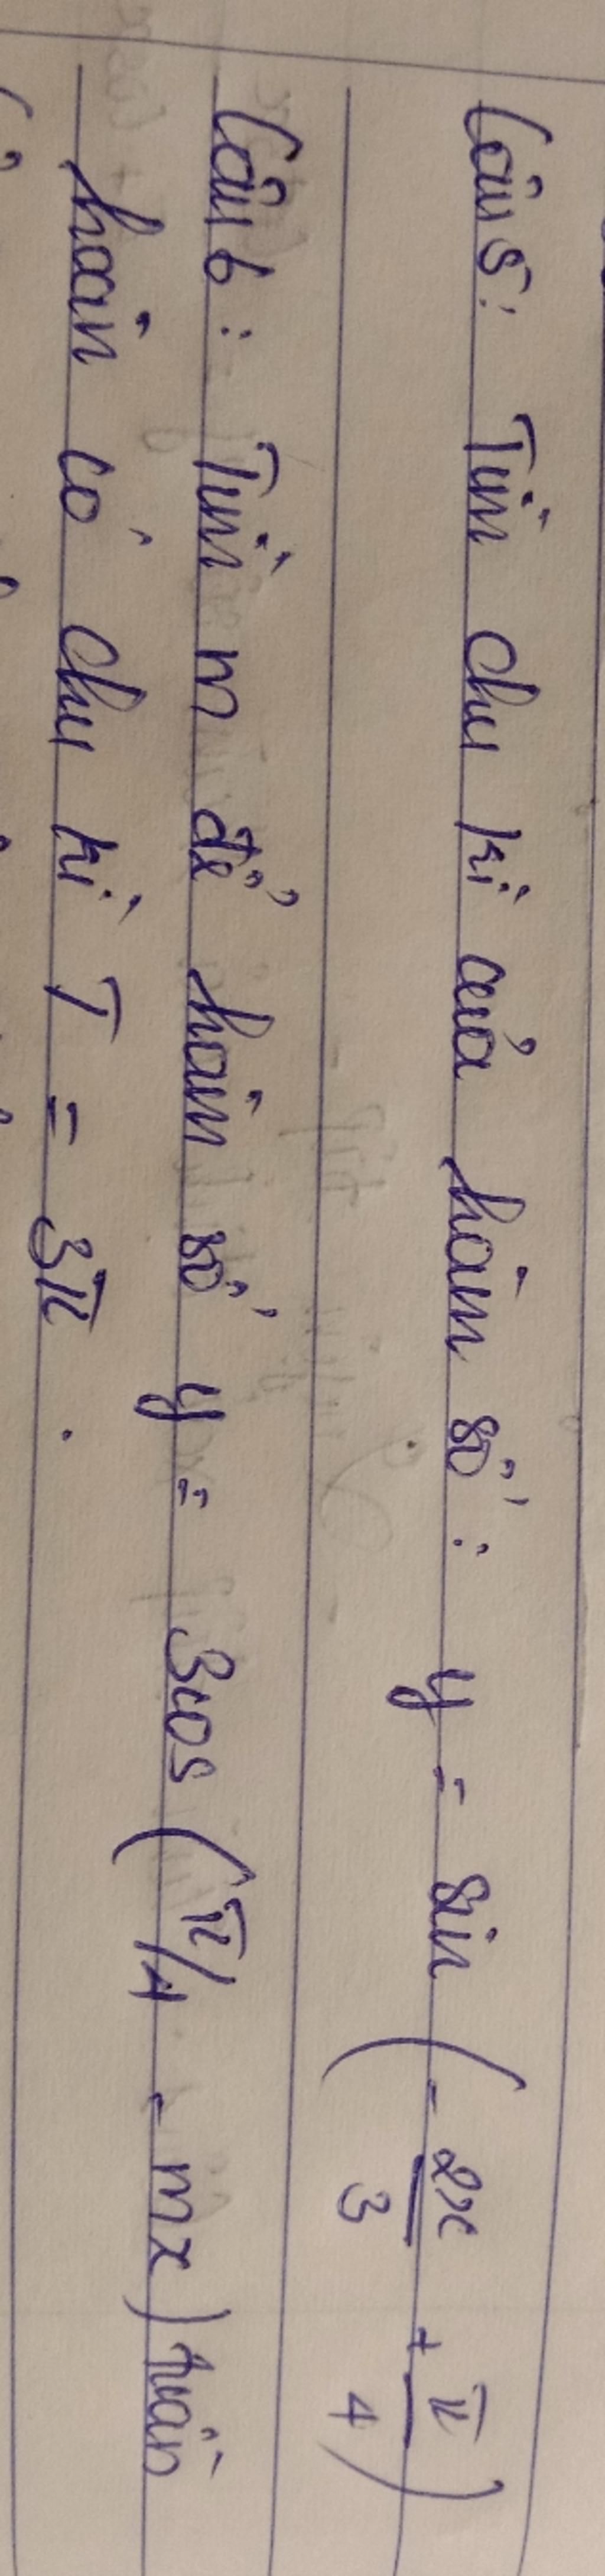 Câu 5: Tìm chu kì của hàm số: y = sin (- 2x/3 + π/4)
Câu 6: Tìm m để hàm số y = 3cos (π/4 - mx) tuần
hoàn có chu kì T = 3π.